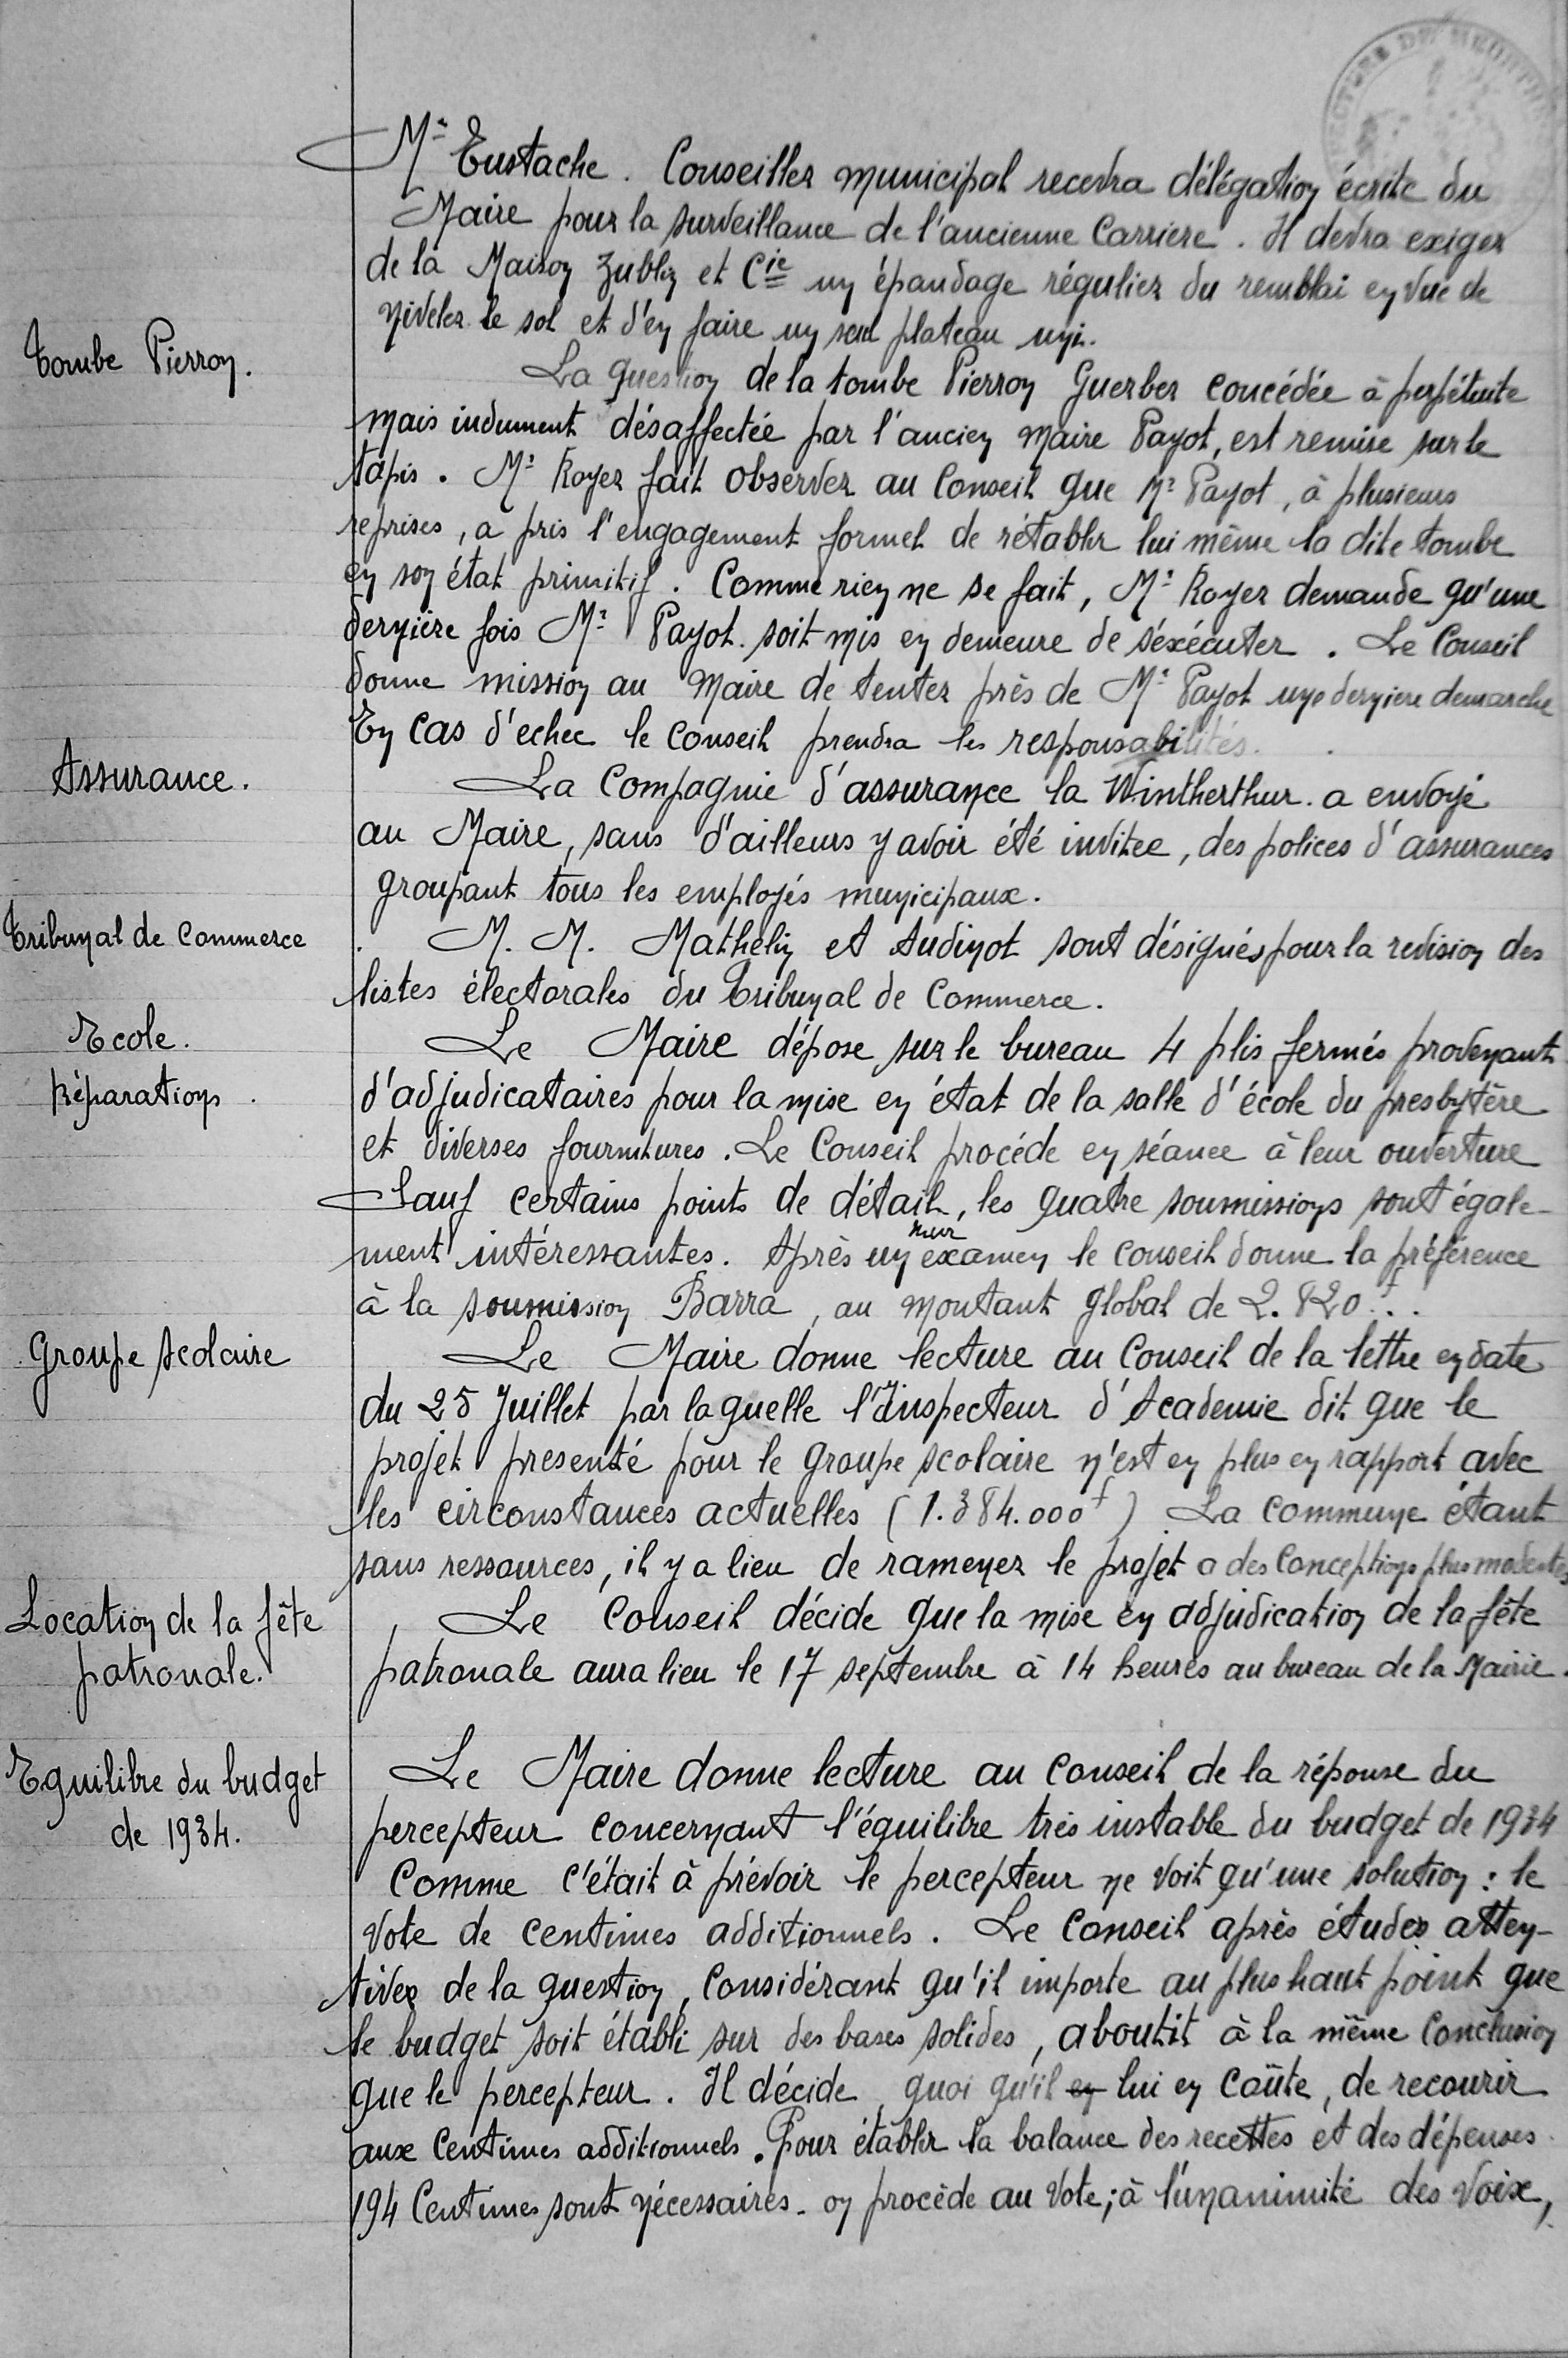 Mr Eustache. Conseiller municipal recevra délégation écrite du
Maire pour la surveillance de l'ancienne Carriere. Il devra exiger
de la Maison Zublin et Cie un épandage régulier du remblai en vue de
niveler le sol et d'en faire un seul plateau uni.
Tombe Pierron.
La question de la tombe Pierron Guerber concédée à perpétuite
mais indument désaffectée par l'ancien Maire Payot, est remise sur le
tapis. Mr Royer fait observer au Conseil que Mr Payot, à plusieurs
reprises, a pris l'engagement formel de rétablir lui même la dite tombe
en son état primitif. Comme rien ne se fait, Mr Royer demande qu'une
dernière fois Mr Payot soit mis en demeure de s'éxécuter. Le Conseil
donne mission au Maire de tenter près de Mr Payot une derniere demarche
En cas d'echec le Conseil prendra les responsabilités.
Assurance.
La Compagnie d'assurance la Wintherthur a envoyé
au Maire, sans d'ailleurs y avoir été invitee, des polices d'assurances
groupant tous les employés municipaux.
Tribunal de Commerce
M. M. Mathelin et Audinot sont désignés pour la revision des
listes électorales du Tribunal de Commerce.
Ecole.
Réparations.
Le Maire dépose sur le bureau 4 plis fermés provenant
d'adjudicataires pour la mise en état de la salle d'école du presbytère
et diverses fournitures. Le Conseil procéde en séance à leur ouverture
Sauf certains points de détail, les quatre soumissions sont égale-
ment intéressantes. Après un mur examen le conseil donne la préférence
à la soumission Barra, au montant global de 2.820f..
Groupe Scolaire
Le Maire donne lecture au Conseil de la lettre en date
du 25 Juillet par laquelle l'Inspecteur d'Academie dit que le
projet presenté pour le groupe scolaire n'est en plus en rapport avec
les circonstances actuelles (1.384.000f) La Commune étant
sans ressources, il y a lieu de ramener le projet a des Conceptions plus modestes
Location de la fête
patronale.
Le Conseil décide que la mise en adjudication de la fête
patronale aura lieu le 17 septembre à 14 heures au bureau de la Mairie.
Equilibre du budget
de 1934.
Le Maire donne lecture au Conseil de la réponse du
percepteur concernant l'équilibre très instable du budget de 1934
Comme c'était à prévoir le percepteur ne voit qu'une solution : le
vote de centimes additionnels. Le Conseil après études atten-
tives de la question, Considérant qu'il importe au plus haut point que
le budget soit établi sur des bases solides, aboutit à la même Conclusion
que le percepteur. Il décide, quoi qu'il en lui en coûte, de recourir
aux Centimes additionnels. Pour établir la balance des recettes et des dépenses
194 Centimes sont nécessaires. on procède au vote; à l'unanimité des voix,